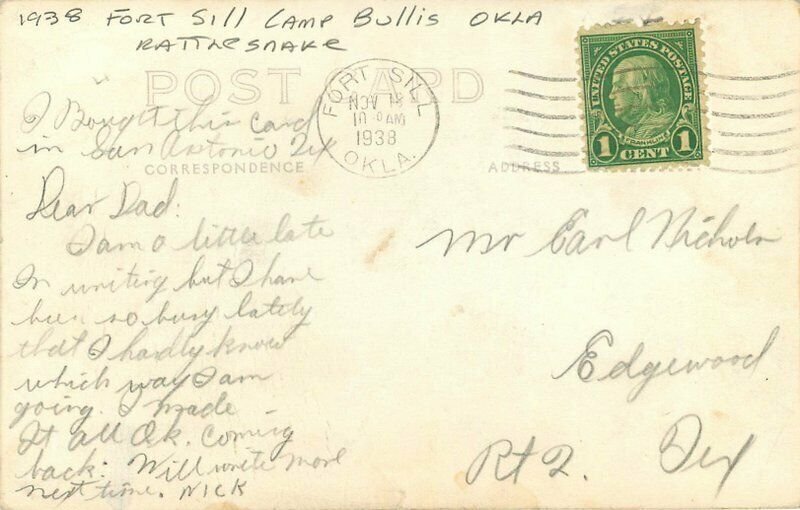 1938 FORT Sill CAMP Bullis OKLA
RATTlesnake
POST CARD
I Bought this card
in San Antonio Tex
CORRESPONDENCE
ADDRESS
FORT SILL
NOV 18
10 AM
1938
OKLA.
UNITED STATES POSTAGE
FRANKLIN
1 CENT 1
Dear Dad:
I am a little late
In writing but I have
been so busy lately
that I hardly know
which way I am
going. I made
It all Ok. coming
back. Will write more
next time. NICK
Mr Earl Nichols
Edgewood
Rt 2. Tex